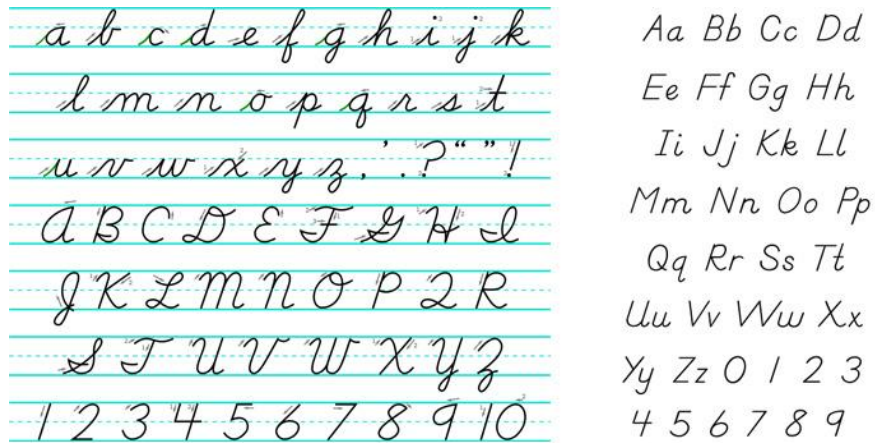 a b c d e f g h i j k
l m n o p q r s t
u v w x y z , ' . ? “ ” !
A B C D E F G H I
J K L M N O P Q R
S T U V W X Y Z
1 2 3 4 5 6 7 8 9 10
Aa Bb Cc Dd
Ee Ff Gg Hh
Ii Jj Kk Ll
Mm Nn Oo Pp
Qq Rr Ss Tt
Uu Vv Ww Xx
Yy Zz 0 1 2 3
4 5 6 7 8 9